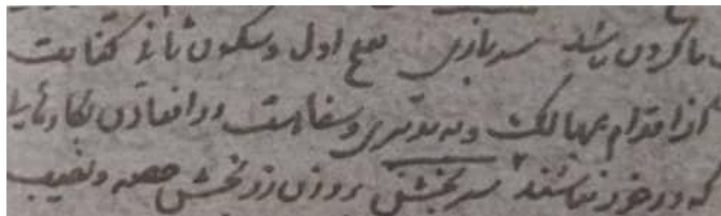 ما کردن باشد سربازی بفتح اول و سکون ثانی کنایت
از اقدام بمهالک و بد و سفاهت و در افتادن بکارهای
که در خور نباشند سربخشی بر وزن زربخش حصه و نصیب